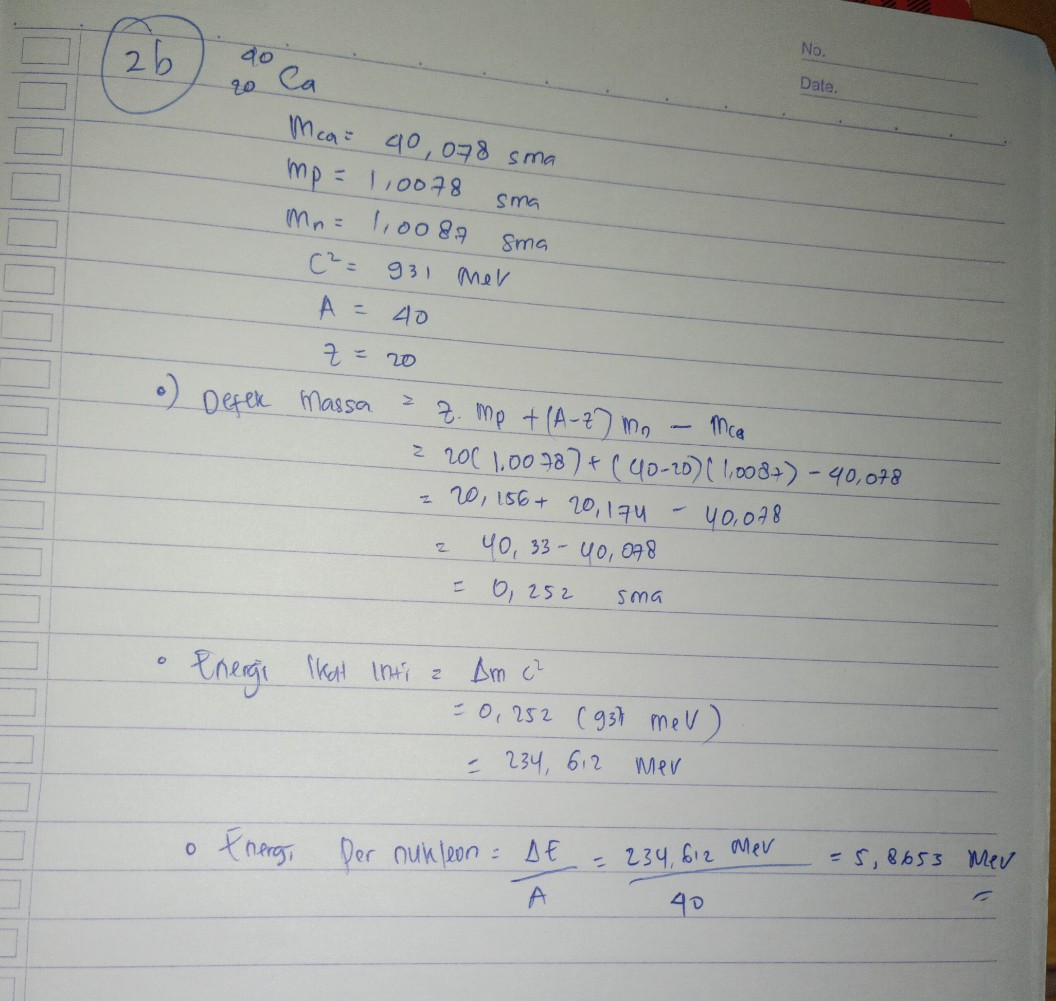 No.
Date.
2b
40
20 Ca
Mca = 40,078 sma
mp = 1,0078 sma
Mn = 1,0087 sma
C² = 931 MeV
A = 40
Z = 20
•) Defek Massa = Z. Mp + (A-Z) Mn - Mca
= 20( 1,0078) + (40-20)(1,0087) - 40,078
= 20,156 + 20,174 - 40,078
= 40,33 - 40,078
= 0,252 sma
• Energi Ikat Inti = Δm C²
= 0,252 (931 meV)
= 234,612 MeV
• Energi Per nukleon = ΔE/A = 234,612 MeV/40 = 5,8653 MeV